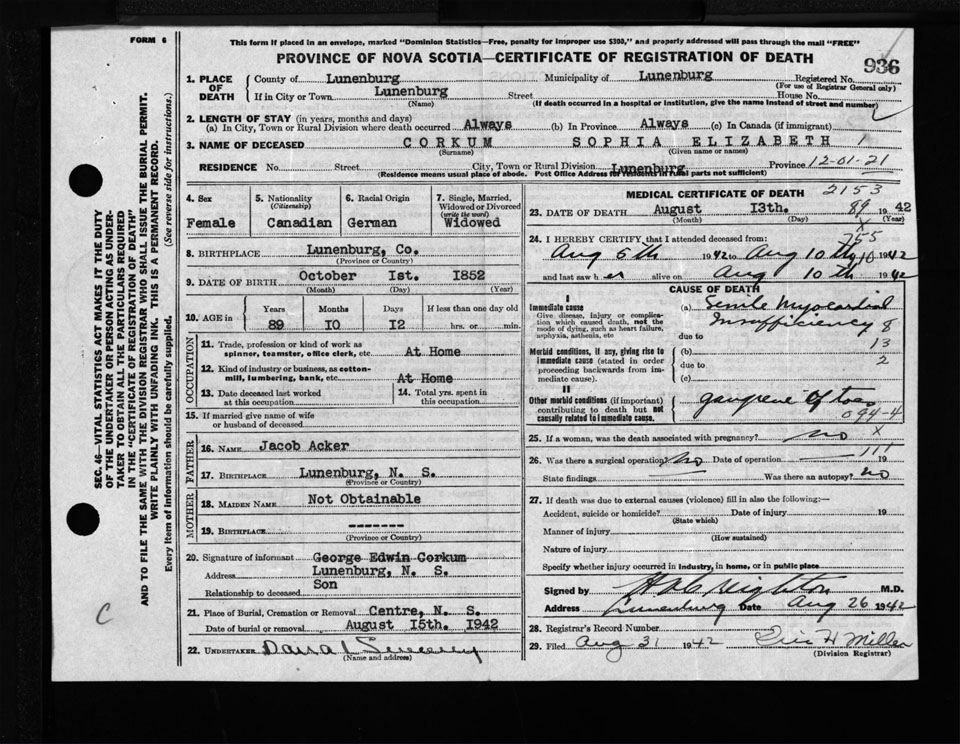 FORM 6
This form if placed in an envelope, marked "Dominion Statistics—Free, penalty for improper use $300," and properly addressed will pass through the mail "FREE"
PROVINCE OF NOVA SCOTIA—CERTIFICATE OF REGISTRATION OF DEATH
936
1. PLACE OF DEATH
County of Lunenburg Municipality of Lunenburg Registered No.
(For use of Registrar General only)
If in City or Town Lunenburg Street House No.
(Name) (If death occurred in a hospital or institution, give the name instead of street and number)
2. LENGTH OF STAY (in years, months and days)
(a) In City, Town or Rural Division where death occurred Always (b) In Province Always (c) In Canada (if immigrant)
3. NAME OF DECEASED CORKUM SOPHIA ELIZABETH
(Surname) (Given name or names)
RESIDENCE No. Street City, Town or Rural Division Lunenburg Province 12-01-21
(Residence means usual place of abode. Post Office Address for residents in rural parts not sufficient)
4. Sex
Female
5. Nationality
(Citizenship)
Canadian
6. Racial Origin
German
7. Single, Married, Widowed or Divorced
(write the word)
Widowed
8. BIRTHPLACE Lunenburg, Co.
(Province or Country)
9. DATE OF BIRTH October 1st. 1852
(Month) (Day) (Year)
10. AGE in
Years Months Days If less than one day old
89 10 12 hrs. or min.
OCCUPATION
11. Trade, profession or kind of work as spinner, teamster, office clerk, etc. At Home
12. Kind of industry or business, as cotton-mill, lumbering, bank, etc. At Home
13. Date deceased last worked at this occupation
14. Total yrs. spent in this occupation
15. If married give name of wife or husband of deceased
FATHER
16. NAME Jacob Acker
17. BIRTHPLACE Lunenburg, N. S.
(Province or Country)
MOTHER
18. MAIDEN NAME Not Obtainable
19. BIRTHPLACE -------
(Province or Country)
20. Signature of informant George Edwin Corkum
Address Lunenburg, N. S.
Relationship to deceased Son
21. Place of Burial, Cremation or Removal Centre, N. S.
Date of burial or removal August 15th. 1942
22. UNDERTAKER
(Name and address)
MEDICAL CERTIFICATE OF DEATH
2153
23. DATE OF DEATH August 13th. 89 1942
(Month) (Day) (Year)
X
755
24. I HEREBY CERTIFY that I attended deceased from:
Aug 5th 1942 to Aug 10th 1942
and last saw her alive on Aug 10th 1942
CAUSE OF DEATH
I
Immediate cause
Give disease, injury or complication which caused death, not the mode of dying, such as heart failure, asphyxia, asthenia, etc
(a) Senile Myocardial
Insufficiency 8
due to
13
Morbid conditions, if any, giving rise to immediate cause (stated in order proceeding backwards from immediate cause).
(b)
due to 2
(c)
II
Other morbid conditions (if important) contributing to death but not causally related to immediate cause.
gangrene of toes
094-4
25. If a woman, was the death associated with pregnancy? no X
26. Was there a surgical operation? No Date of operation 19
111
State findings Was there an autopsy? no
27. If death was due to external causes (violence) fill in also the following:—
Accident, suicide or homicide? Date of injury 19
(State which)
Manner of injury
(How sustained)
Nature of injury
Specify whether injury occurred in industry, in home, or in public place
Signed by H A Creighton M.D.
Address Lunenburg Date Aug 26 1942
28. Registrar's Record Number
29. Filed Aug 31 1942 H Miller
(Division Registrar)
SEC. 46—VITAL STATISTICS ACT MAKES IT THE DUTY
OF THE UNDERTAKER OR PERSON ACTING AS UNDERTAKER
TO OBTAIN ALL THE PARTICULARS REQUIRED
IN THE "CERTIFICATE OF REGISTRATION OF DEATH"
AND TO FILE THE SAME WITH THE DIVISION REGISTRAR WHO SHALL ISSUE THE BURIAL PERMIT.
WRITE PLAINLY WITH UNFADING INK. THIS IS A PERMANENT RECORD.
Every item of information should be carefully supplied. (See reverse side for instructions.)
C